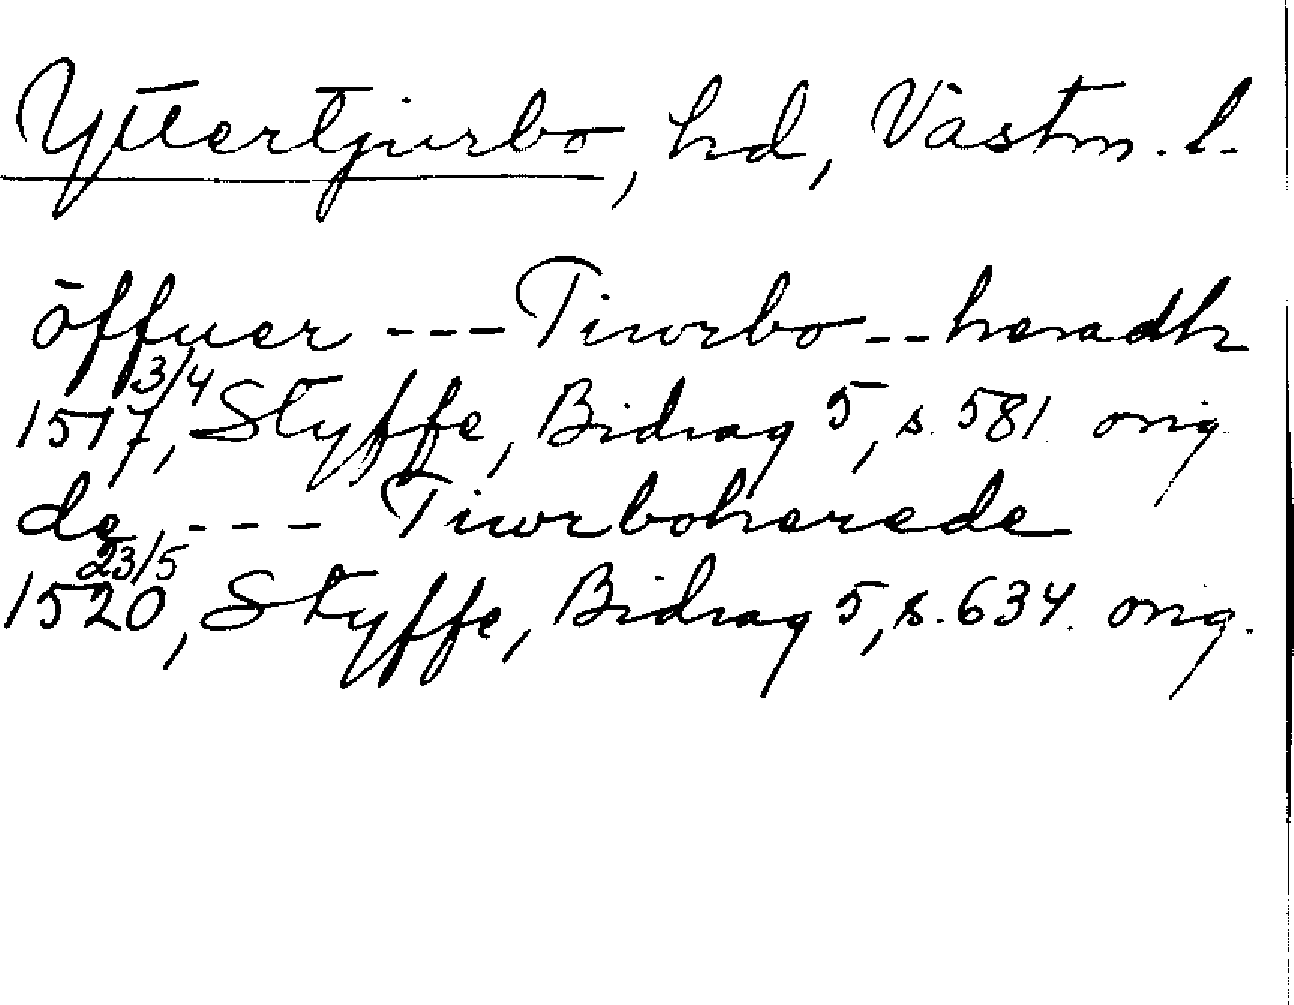 Yttertjurbo, hd, Västm. l.
öffuer --- Tiwrbo -- heradh
3/4
1517, Styffe, Bidrag 5, s. 581 orig
de --- Tiwrboherede
23/5
1520, Styffe, Bidrag 5, s. 634. orig.